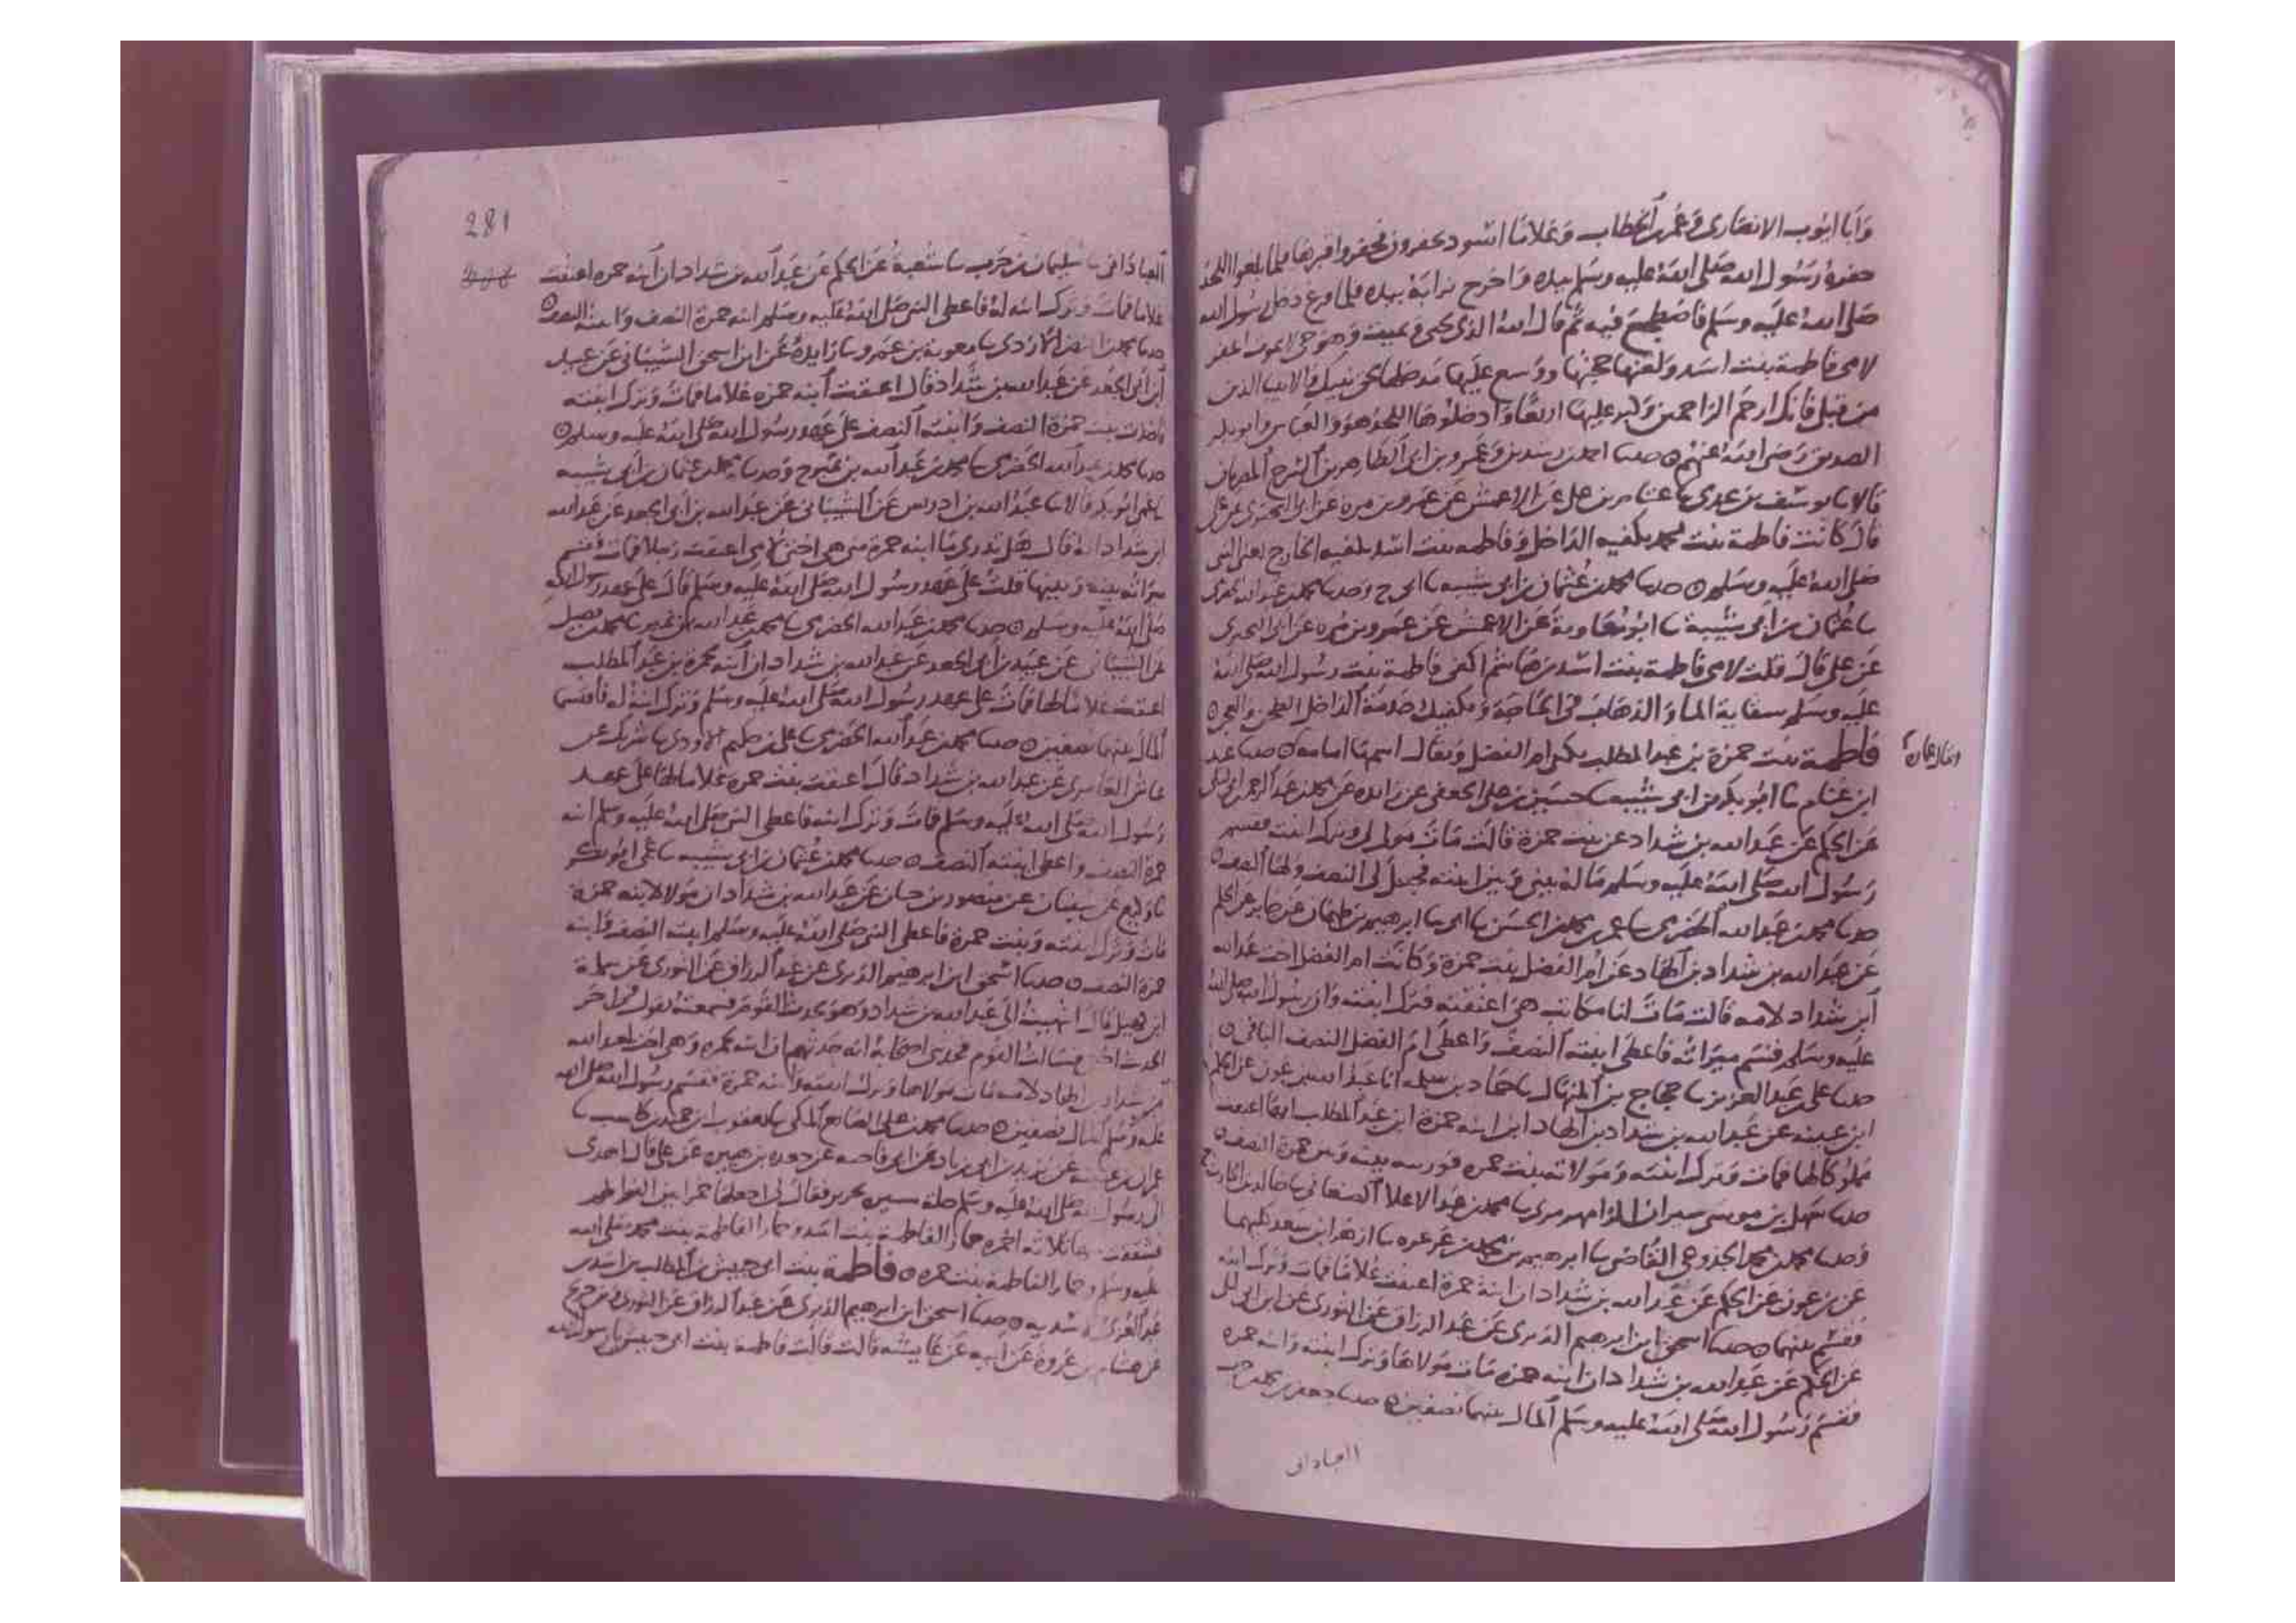 وأبا أيوب الانصارى وعمر بن الخطاب وغلاما اسود يحفرون فحفروا قبرها فلما بلغوا اللحد
حفره رسول الله صلى الله عليه وسلم بيده واخرج ترابه بيده فلما فرغ دخل رسول الله
صلى الله عليه وسلم فاضطجع فيه ثم قال الله الذى يحيى ويميت وهو حى لا يموت اغفر
لامى فاطمة بنت اسد ولقنها حجتها ووسع عليها مدخلها بحق نبيك والانبيا الذين
من قبلى فانك ارحم الراحمين وكبر عليها اربعا وادخلوها اللحد هو والعباس وابو بكر
الصديق رضى الله عنهم حدثنا احمد بن رشدين وعمرو بن ابى الطاهر بن السرح المصريان
قالا ثنا يوسف بن عدى ثنا عثام بن على عن الاعمش عن عمرو بن مرة عن ابى البخترى عن على
قال كانت فاطمة بنت محمد تكفيه الداخل وفاطمه بنت اسد تكفيه الخارج يعنى النبى
صلى الله عليه وسلم حدثنا محمد بن عثمان بن ابى شيبه ثنا ابى ح وحدثنا محمد بن عبد الله الحضرى
ثنا عثمان بن ابى شيبة ثنا ابو معاوية عن الاعمش عن عمرو بن مره عن ابى البخترى
عن على قال قلت لامى فاطمة بنت اسد بن هاشم اكفى فاطمة بنت رسول الله صلى الله
عليه وسلم سقاية الما والذهاب فى الحاجة وتكفيك خدمة الداخل الطحن والعجن
فاطمة بنت حمزة بن عبد المطلب يكنى ام الفضل ويقال اسمها امامه حدثنا عبيد
ابن غنام ثنا ابو بكر بن ابى شيبه ثنا حسين بن على الجعفى عن زائده عن محمد بن عبد الرحمن بن ابى ليلى
عن الحكم عن عبد الله بن شداد عن بنت حمزة قالت مات مولى لى وترك ابنته فقسم
رسول الله صلى الله عليه وسلم ماله بينى وبين ابنته فجعل لى النصف ولها النصف
حدثنا محمد بن عبد الله الحضرى ثنا عمر بن محمد بن الحسن ثنا ابى ثنا ابرهيم بن طهمان عن جابر عن الحكم
عن عبد الله بن شداد بن الهاد عن ام الفضل بنت حمزة وكانت ام الفضل اخت عبد الله
ابن شداد لامه قالت مات لنا هى اعتقته فترك ابنته وان رسول الله صلى الله
عليه وسلم قسم ميراثه فاعطى ابنته النصف واعطى ام الفضل النصف الباقى
حدثنا على بن عبد العزيز ثنا حجاج بن المنهال ثنا حماد بن سلمه انا عبد الله بن عون عن الحكم
ابن عيينه عن عبد الله بن شداد بن الهاد ان ابنه حمزة ابن عبد المطلب اعتقت
مملوكا لها فمات وترك ابنته ومولاته بنت حمزه بينه وبنت حمزة النصف
حدثنا سهل بن موسى سيران الرامهرمزى ثنا محمد بن عبد الاعلا الصنعانى ثنا خالد بن الحارث ح
وحدثنا محمد بن محمد الجذوعى القاضى ثنا ابرهيم بن محمد بن عرعره ثنا ازهر ابن سعد كليهما
عن بن عون عن الحكم عن عبد الله بن شداد ان ابنة حمزة اعتقت غلاما فمات وترك ابنته
فقسم بينهما حدثنا اسحق ابن ابرهيم الدبرى عن عبد الرزاق عن الثورى عن ابن ابى ليلى
عن الحكم عن عبد الله بن شداد ان ابنه حمزه مات مولاها وترك ابنته وابنه حمزه
فقسم رسول الله صلى الله عليه وسلم المال بينهما نصفين حدثنا جعفر بن محمد بن حرب
العبادانى
281
العبادانى ثنا سليمان بن حرب ثنا شعبة عن الحكم عن عبد الله بن شداد ان ابنه حمزه اعتقت
غلاما فمات وترك ابنته له فاعطى النبى صلى الله عليه وسلم ابنه حمزة النصف وابنته النصف
حدثنا محمد بن النضر الازدى ثنا معوية بن عمرو ثنا زايدة عن ابى اسحق الشيبانى عن عبيد
ابن ابى الجعد عن عبد الله بن شداد قال اعتقت ابنه حمزه غلاما فمات وترك ابنته
فاخذت بنت حمزة النصف وابنته النصف على عهد رسول الله صلى الله عليه وسلم
حدثنا محمد بن عبد الله الحضرى ثنا محمد بن عبد الله بن نمير ح وحدثنا محمد بن عثمان بن ابى شيبه
ثنا عمى ابو بكر قالا ثنا عبد الله بن ادريس عن الشيبانى عن عبد الله بن ابى الجعد عن عبد الله
ابن شداد انه قال هل تدرى ما ابنه حمزة منى هى اختى لامى اعتقت رجلا فمات فقسم
ميراثه بينه وبينها قلت على عهد رسول الله صلى الله عليه وسلم قال على عهد رسول الله
صلى الله عليه وسلم حدثنا محمد بن عبد الله الحضرى ثنا محمد بن عبد الله بن نمير ثنا محمد بن فضيل
عن الشيبانى عن عبيد بن ابى الجعد عن عبد الله بن شداد ان ابنه حمزة بن عبد المطلب
اعتقت غلاما لها فمات على عهد رسول الله صلى الله عليه وسلم وترك ابنة له فاقتسما
المال بينهما نصفين حدثنا محمد بن عبد الله الحضرى ثنا على بن حكيم الاودى ثنا شريك عن
عياش العامرى عن عبد الله بن شداد قال اعتقت بنت حمزه غلاما لها على عهد
رسول الله صلى الله عليه وسلم فمات وترك ابنته فاعطى النبى صلى الله عليه وسلم ابنه
حمزة النصف واعطى ابنته النصف حدثنا محمد بن عثمان بن ابى شيبه ثنا عمى ابو بكر
ثنا وكيع عن سفيان عن منصور بن حيان عن عبد الله بن شداد ان مولا لابنه حمزة
مات وترك ابنته وبنت حمزة فاعطى النبى صلى الله عليه وسلم ابنته النصف وابنه
حمزة النصف حدثنا اسحق ابن ابرهيم الدبرى عن عبد الرزاق عن الثورى عن سلمة
ابن كهيل قال انتهيت الى عبد الله بن شداد وهو يحدث القوم فسمعته يقول
فسالت القوم فحدثنى اصحابه انه حدثهم ان ابنه حمزه وهى اخت عبد الله
بن شداد بن الهاد لامه مات مولاها وترك ابنته وابنه حمزة فقسم رسول الله صلى الله
عليه وسلم المال نصفين حدثنا محمد بن على الصايغ المكى ثنا يعقوب ابن حميد بن كاسب ثنا
عمران بن عيينه عن يزيد بن ابى زياد عن ابى فاخته عن جعده بن هبيره عن على قال اهدى
الى رسول الله صلى الله عليه وسلم حلة بحرير فقال لى اجعلها خمرا بين الفواطم
فشققت منها ثلاثه اخمره خمارا لفاطمة بنت اسد وخمارا لفاطمة بنت محمد صلى الله
عليه وسلم وخمارا لفاطمة بنت حمزه فاطمة بنت ابى حبيش بن المطلب بن اسد بن
عبد العزى حدثنا اسحق ابن ابرهيم الدبرى عن عبد الرزاق عن الثورى وبن جريج
عن هشام بن عروة عن ابيه عن عايشه قالت قالت فاطمة بنت ابى حبيش يا رسول الله